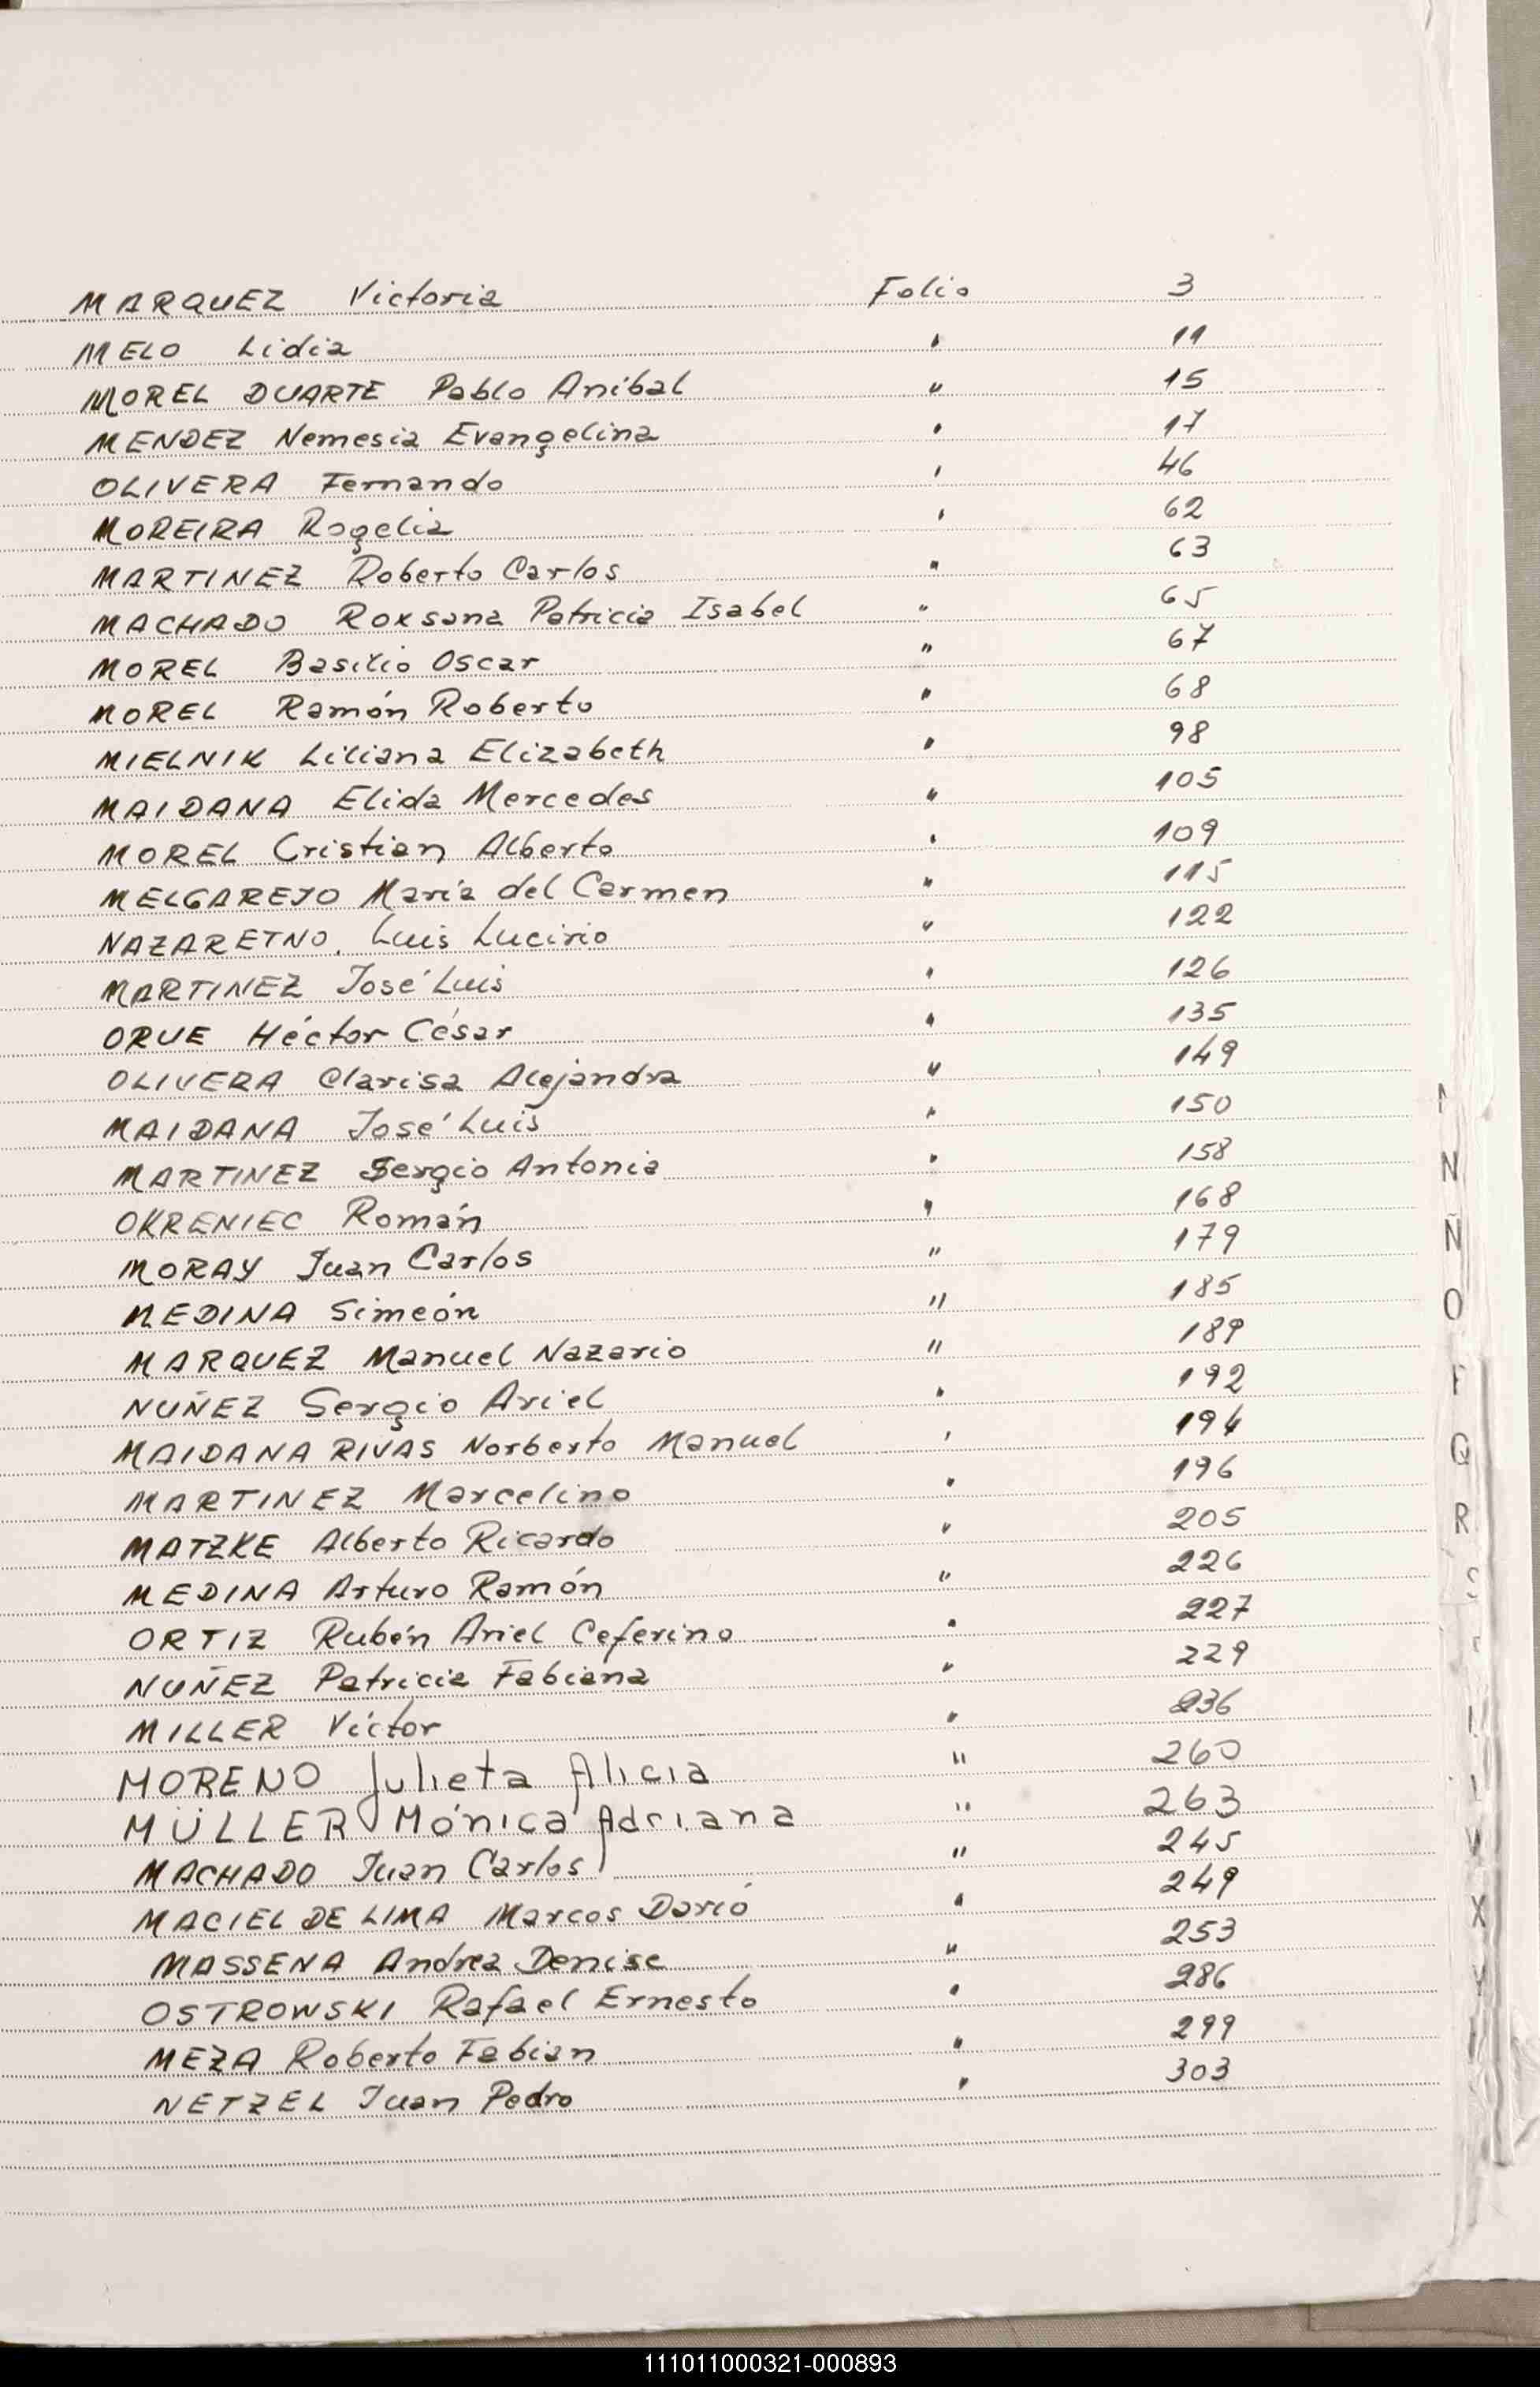 MARQUEZ Victoria Folio 3
MELO Lidia " 11
MOREL DUARTE Pablo Aníbal " 15
MENDEZ Nemesia Evangelina " 17
OLIVERA Fernando " 46
MOREIRA Rogelia " 62
MARTINEZ Roberto Carlos " 63
MACHADO Roxsana Patricia Isabel " 65
MOREL Basilio Oscar " 67
MOREL Ramón Roberto " 68
MIELNIK Liliana Elizabeth " 98
MAIDANA Elida Mercedes " 105
MOREL Cristian Alberto " 109
MELGAREJO María del Carmen " 115
NAZARETNO. Luis Lucirio " 122
MARTINEZ José Luis " 126
ORUE Héctor César " 135
OLIVERA Clarisa Alejandra " 149
MAIDANA José Luis " 150
MARTINEZ Sergio Antonio " 158
OKRENIEC Román " 168
MORAY Juan Carlos " 179
MEDINA Simeón " 185
MARQUEZ Manuel Nazario " 189
NUÑEZ Sergio Ariel " 192
MAIDANA RIVAS Norberto Manuel " 194
MARTINEZ Marcelino " 196
MATZKE Alberto Ricardo " 205
MEDINA Arturo Ramón " 226
ORTIZ Rubén Ariel Ceferino " 227
NUÑEZ Patricia Fabiana " 229
MILLER Víctor " 236
MORENO Julieta Alicia " 260
MÜLLER Mónica Adriana " 263
MACHADO Juan Carlos " 245
MACIEL DE LIMA Marcos Darió " 249
MASSENA Andrea Denise " 253
OSTROWSKI Rafael Ernesto " 286
MEZA Roberto Fabian " 299
NETZEL Juan Pedro " 303
N
Ñ
O
Q
R
X
111011000321-000893